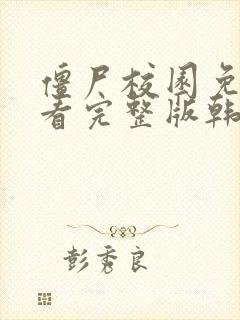 僵尸校园免
看完整版韩
彭秀良